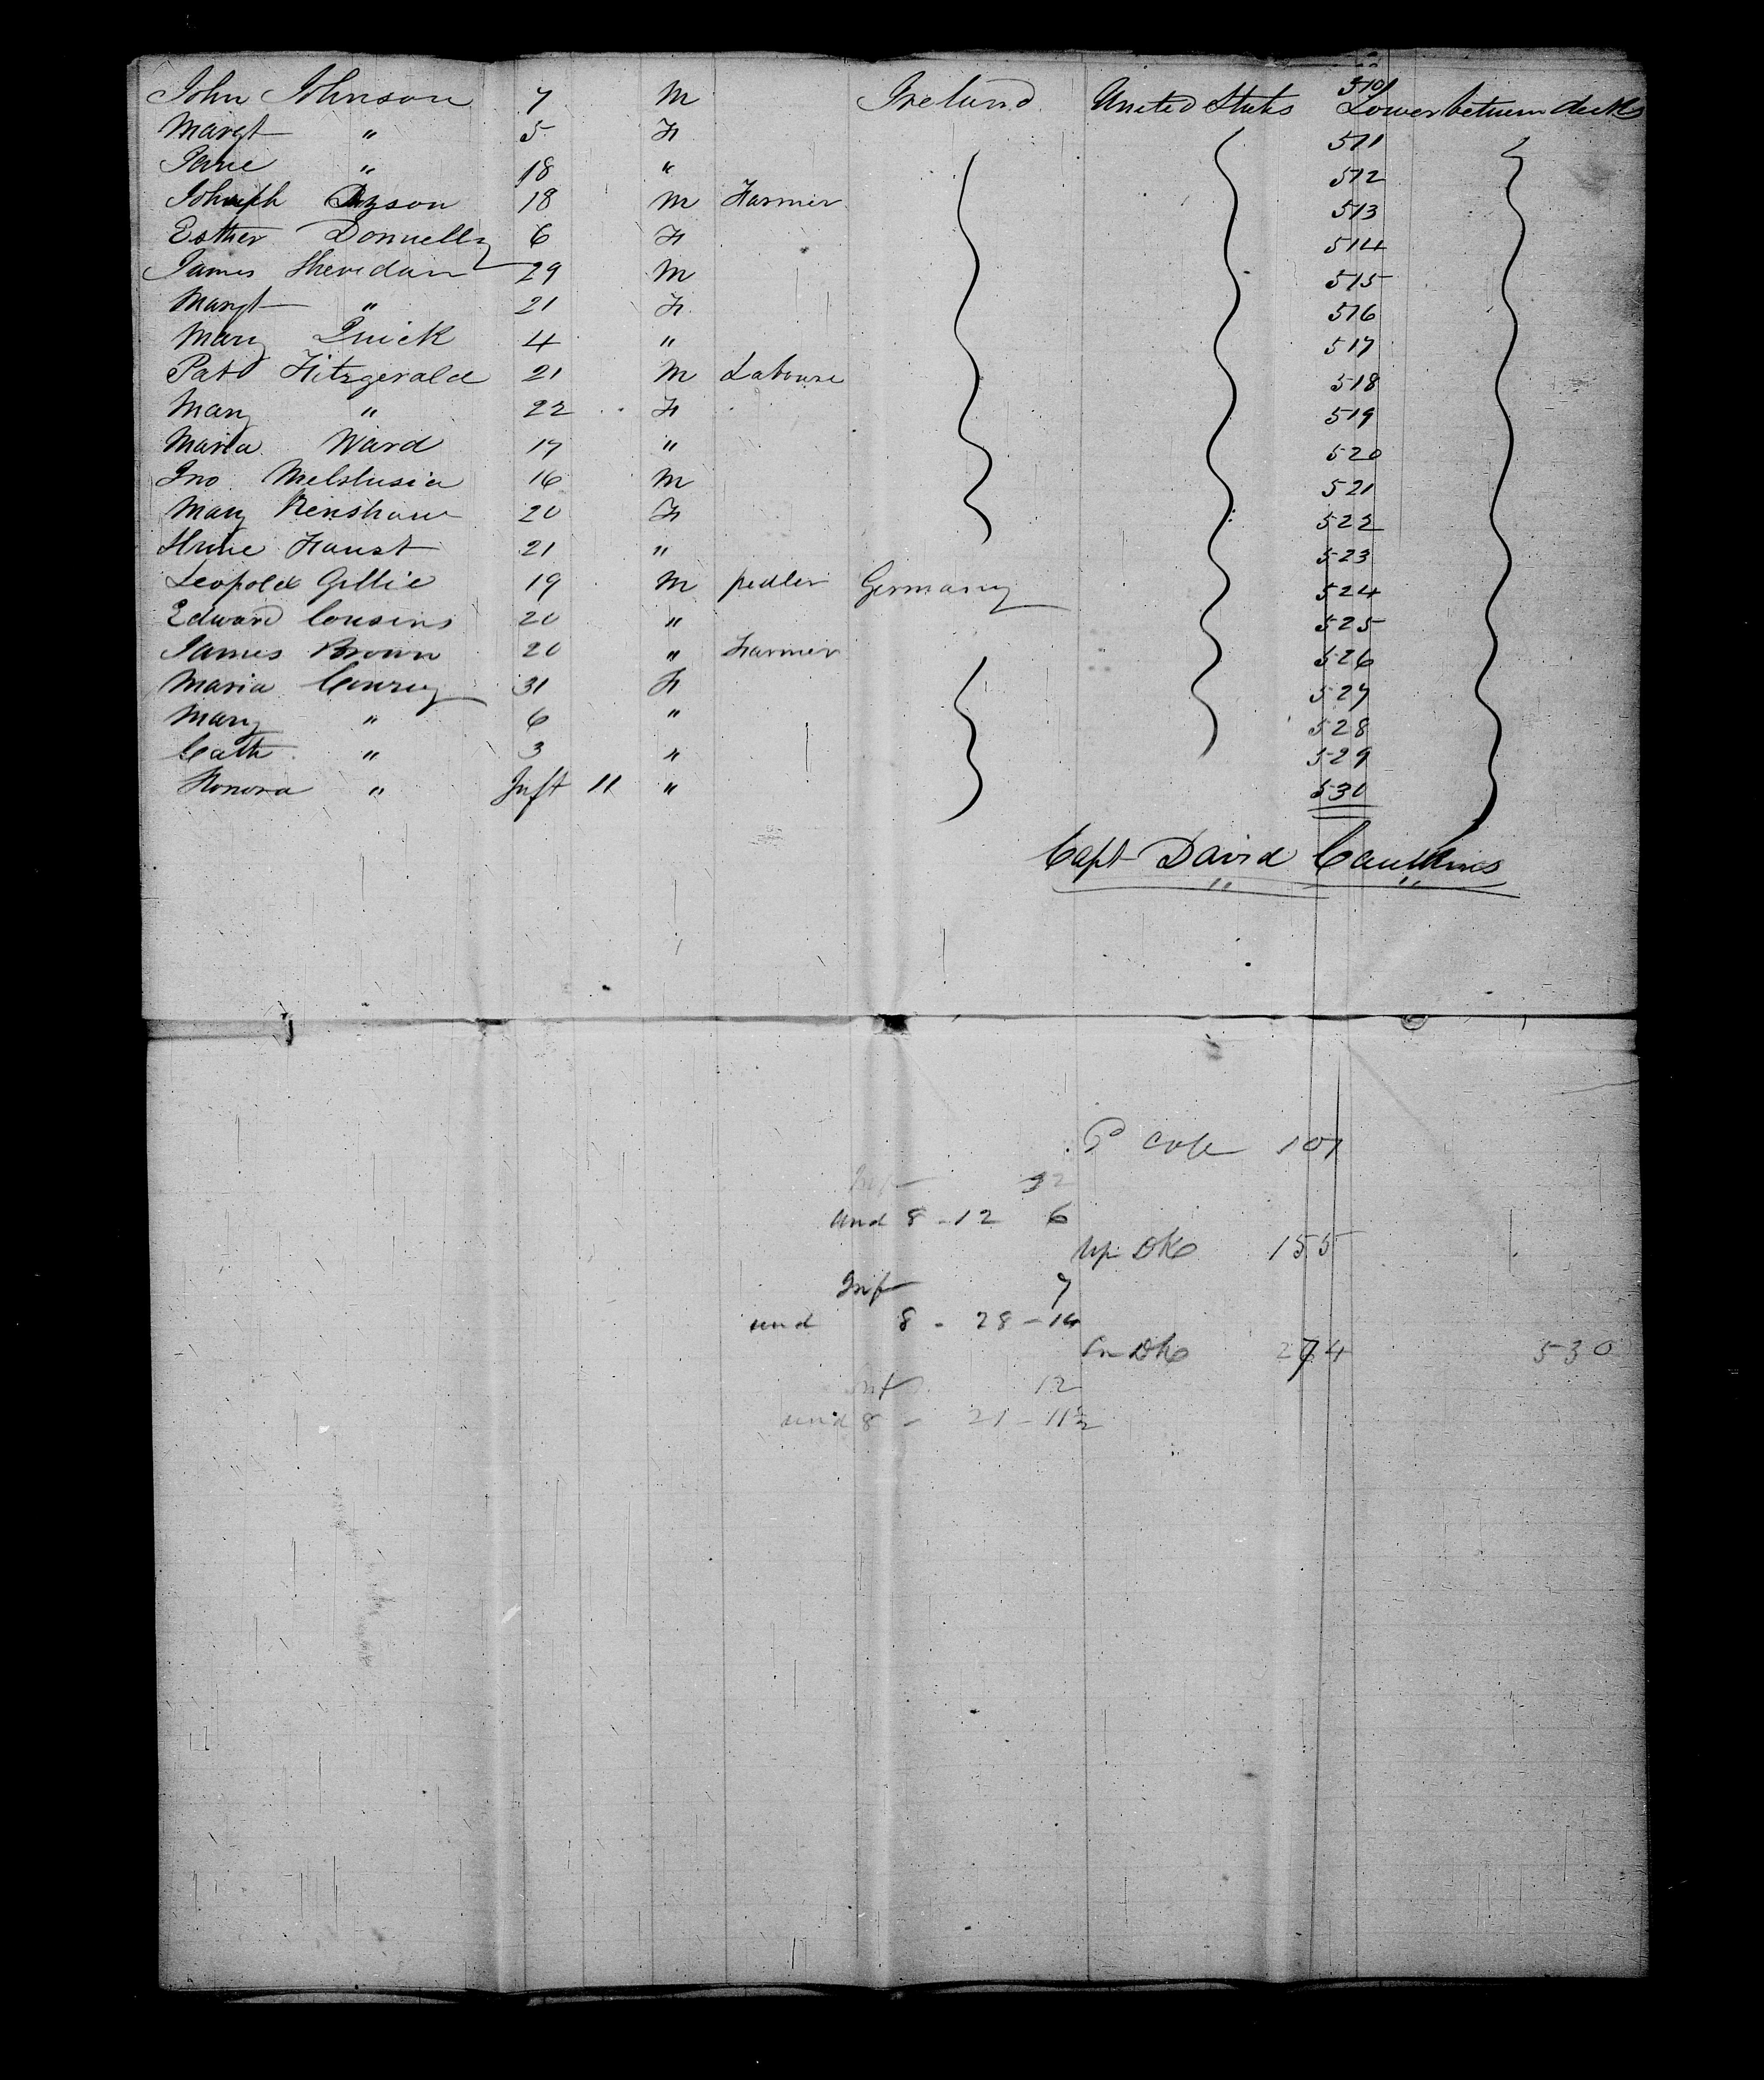 510
John Johnson 7 M Ireland United States Lower between decks
Margt " 5 F 511
Jane " 18 " 512
Dyson 18 M Farmer 513
Esther Donnelly 6 F 514
James Sheridan 29 M 515
Margt " 21 F 516
Mary Quick 4 " 517
Pat Fitzgerald 21 M Laboure 518
Mary " 22 F 519
Maria Ward 17 " 520
Jno 16 M 521
Mary Renshaw 20 F 522
Faust 21 " 523
Leopold Gillie 19 M pedler Germany 524
Edward Cousins 20 " 525
James Brown 20 " Farmer 526
Maria Conroy 31 F 527
Mary " 6 " 528
Cath " 3 " 529
Honora " Inft 11 " 530
Capt David Caulkins
101
Inf 32
und 8 - 12 6
Up DK 155
Inf 7
und 8 - 28 - 14
DK 274 530
Inf 12
und 8 - 21 - 11